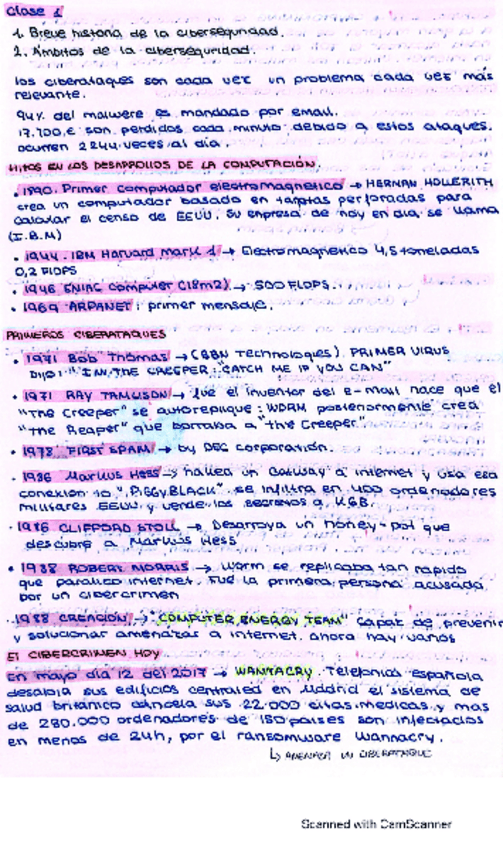 Clase 1
1. Breve historia de la ciberseguridad.
2. Ámbitos de la ciberseguridad.
los ciberataques son cada vez un problema cada vez más
relevante.
94% del malwere es mandado por email.
17.700,€ son perdidos cada minuto debido a estos ataques.
ocurren 2244 veces al día.
HITOS EN LOS DESARROLLOS DE LA COMPUTACIÓN.
· 1890. Primer computador electromagnetico → HERMAN HOLLERITH
crea un computador basado en tarjetas perforadas para
calcular el censo de EEUU. Su enpresa de hoy en día se llama
(I.B.M)
• 1944. IBM Harvard Mark 1 → Electromagnetico 4,5 toneladas
0,2 FlOPS
• 1946 ENIAC computer (18m2) → 500 FLOPS.
• 1969 ARPANET: primer mensaje.
PRIMEROS CIBERATAQUES
• 1971 Bob Thomas → (BBN Technologies). PRIMER VIRUS
DIJO: "I'M THE CREEPER: CATCH ME IF YOU CAN"
• 1971 RAY TAMLISON → fue el inventor del e-mail hace que el
"The Creeper" se autoreplique: WORM posteriormente crea
"the Reaper" que borraba a "the Creeper"
• 1978 FIRST SPAM → by DEC corporation.
• 1986 Markus Hess → hallea un Gateway a internet y usa esa
conexión to "PIGGYBLACK". se infiltra en 400 ordenadores
militares EEUU y vende los secretos a KGB.
· 1986 CLIFFORD STOLL → Desarroya un honey-pot que
descubre a Markus Hess
• 1988 ROBERT MORRIS → worm se replicaba tan rapido
que paralico internet. Fue la primera persona acusada
por un cibercrimen
· 1988 CREACIÓN → "COMPUTER ENERGY TEAM" capaz de prevenir
y solucionar amenazas a internet. ahora hay varios
El CIBERCRIMEN HOY
En mayo día 12 del 2017 → WANNACRY. Telefonia española
desaloja sus edificios centraled en Madrid el sistema de
salud britanico cancela sus 22.000 citas medicas y mas
de 230.000 ordenadores de 150 paises son infectados
en menos de 24h, por el ransomware wannacry.
↳ AMENAZA UN CIBERATAQUE
Scanned with CamScanner